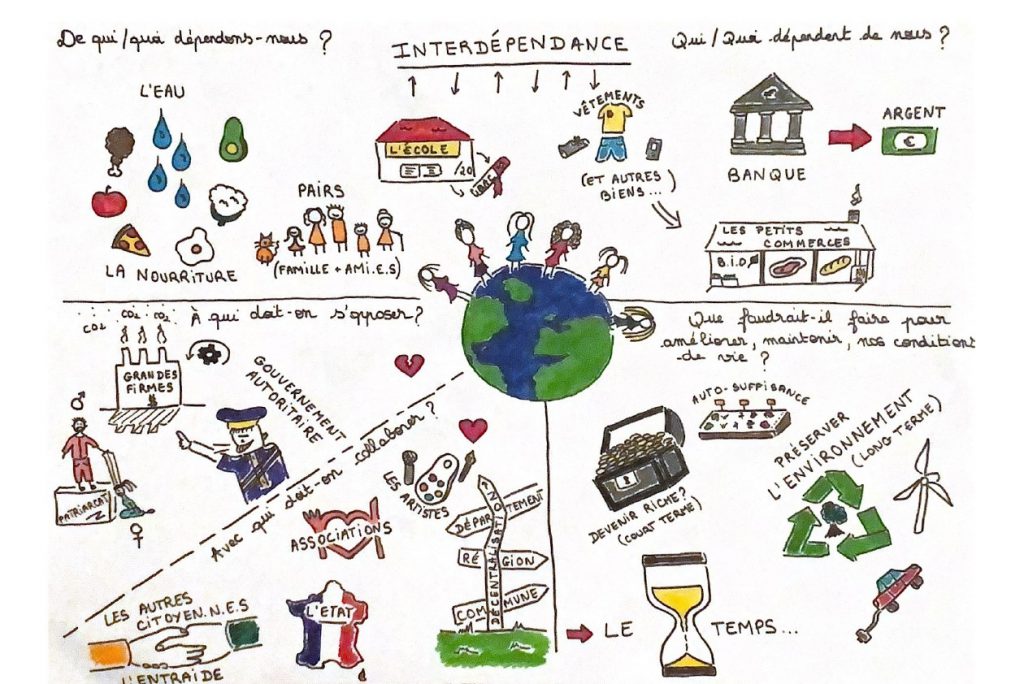 De qui/quoi dépendons-nous ?
INTERDÉPENDANCE
Qui / Quoi dépendent de nous ?
L'EAU
LA NOURRITURE
PAIRS
(FAMILLE + AMI.E.S)
L'ÉCOLE
/20
LIBRE
VÊTEMENTS
(ET AUTRES
BIENS...)
BANQUE
€
ARGENT
€
LES PETITS
COMMERCES
B.I.O
À qui doit-on s'opposer ?
CO2 CO2 CO2
GRANDES
FIRMES
$
GOUVERNEMENT
AUTORITAIRE
♂
PATRIARCAT
♀
Avec qui doit-on collaborer ?
LES ARTISTES
ASSOCIATIONS
LES AUTRES
CITOYEN.N.E.S
L'ENTRAIDE
L'ÉTAT
DÉCENTRALISATION
DÉPARTEMENT
RÉGION
COMMUNE
Que faudrait-il faire pour
améliorer, maintenir, nos conditions
de vie ?
AUTO-SUFFISANCE
DEVENIR RICHE?
(COURT TERME)
PRÉSERVER
L'ENVIRONNEMENT
(LONG TERME)
LE TEMPS...